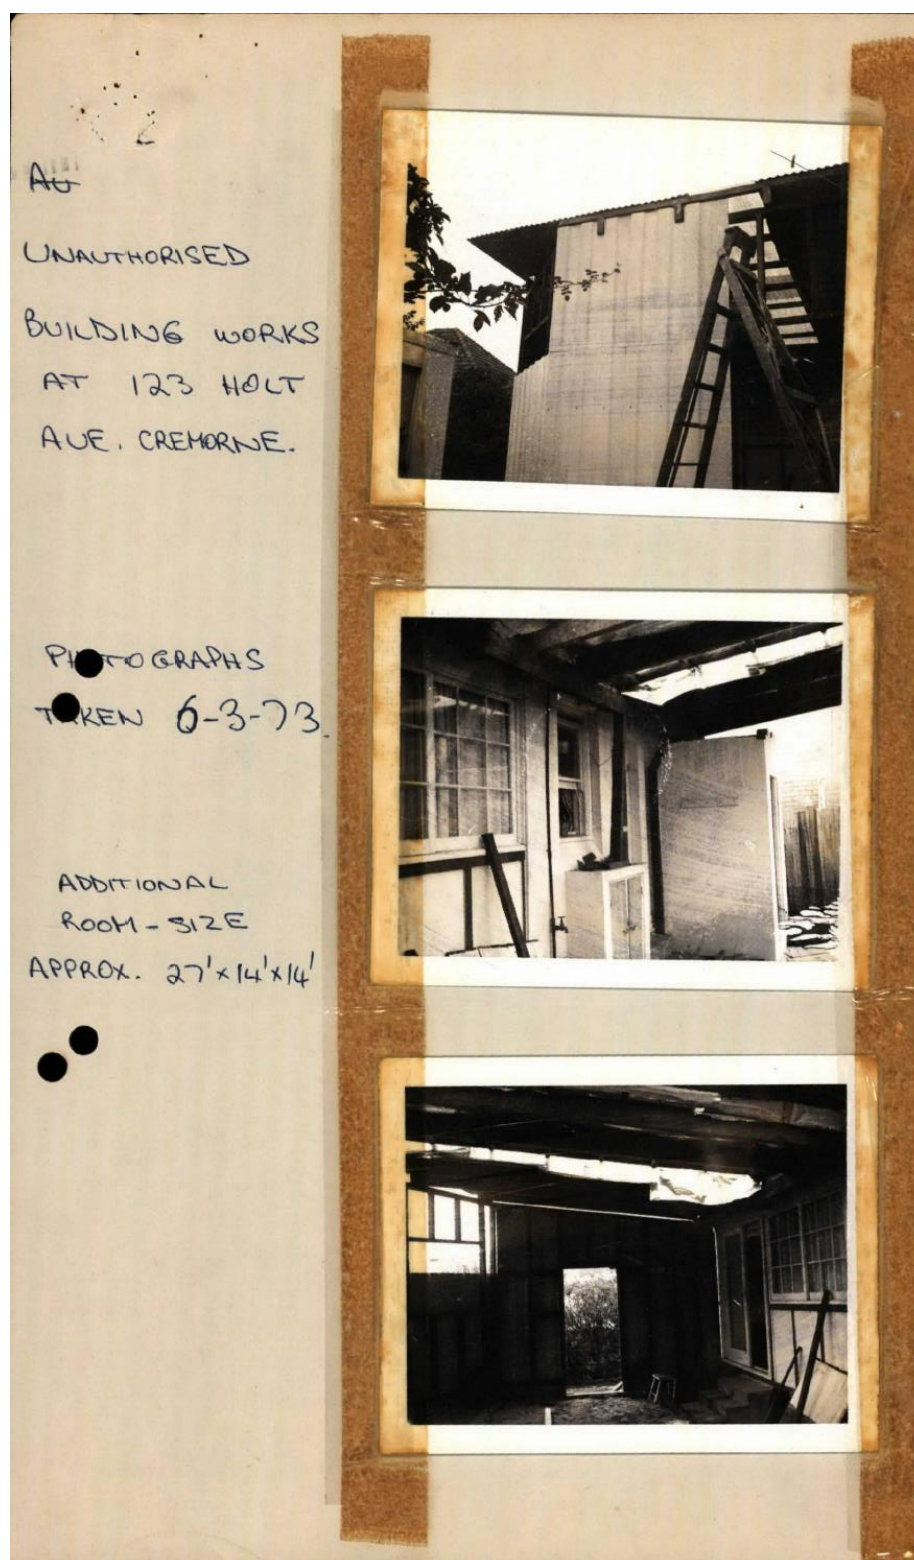 Au
UNAUTHORISED
BUILDING WORKS
AT 123 HOLT
AVE. CREMORNE.
PHOTOGRAPHS
TAKEN 6-3-73.
ADDITIONAL
ROOM - SIZE
APPROX. 27'x14'x14'